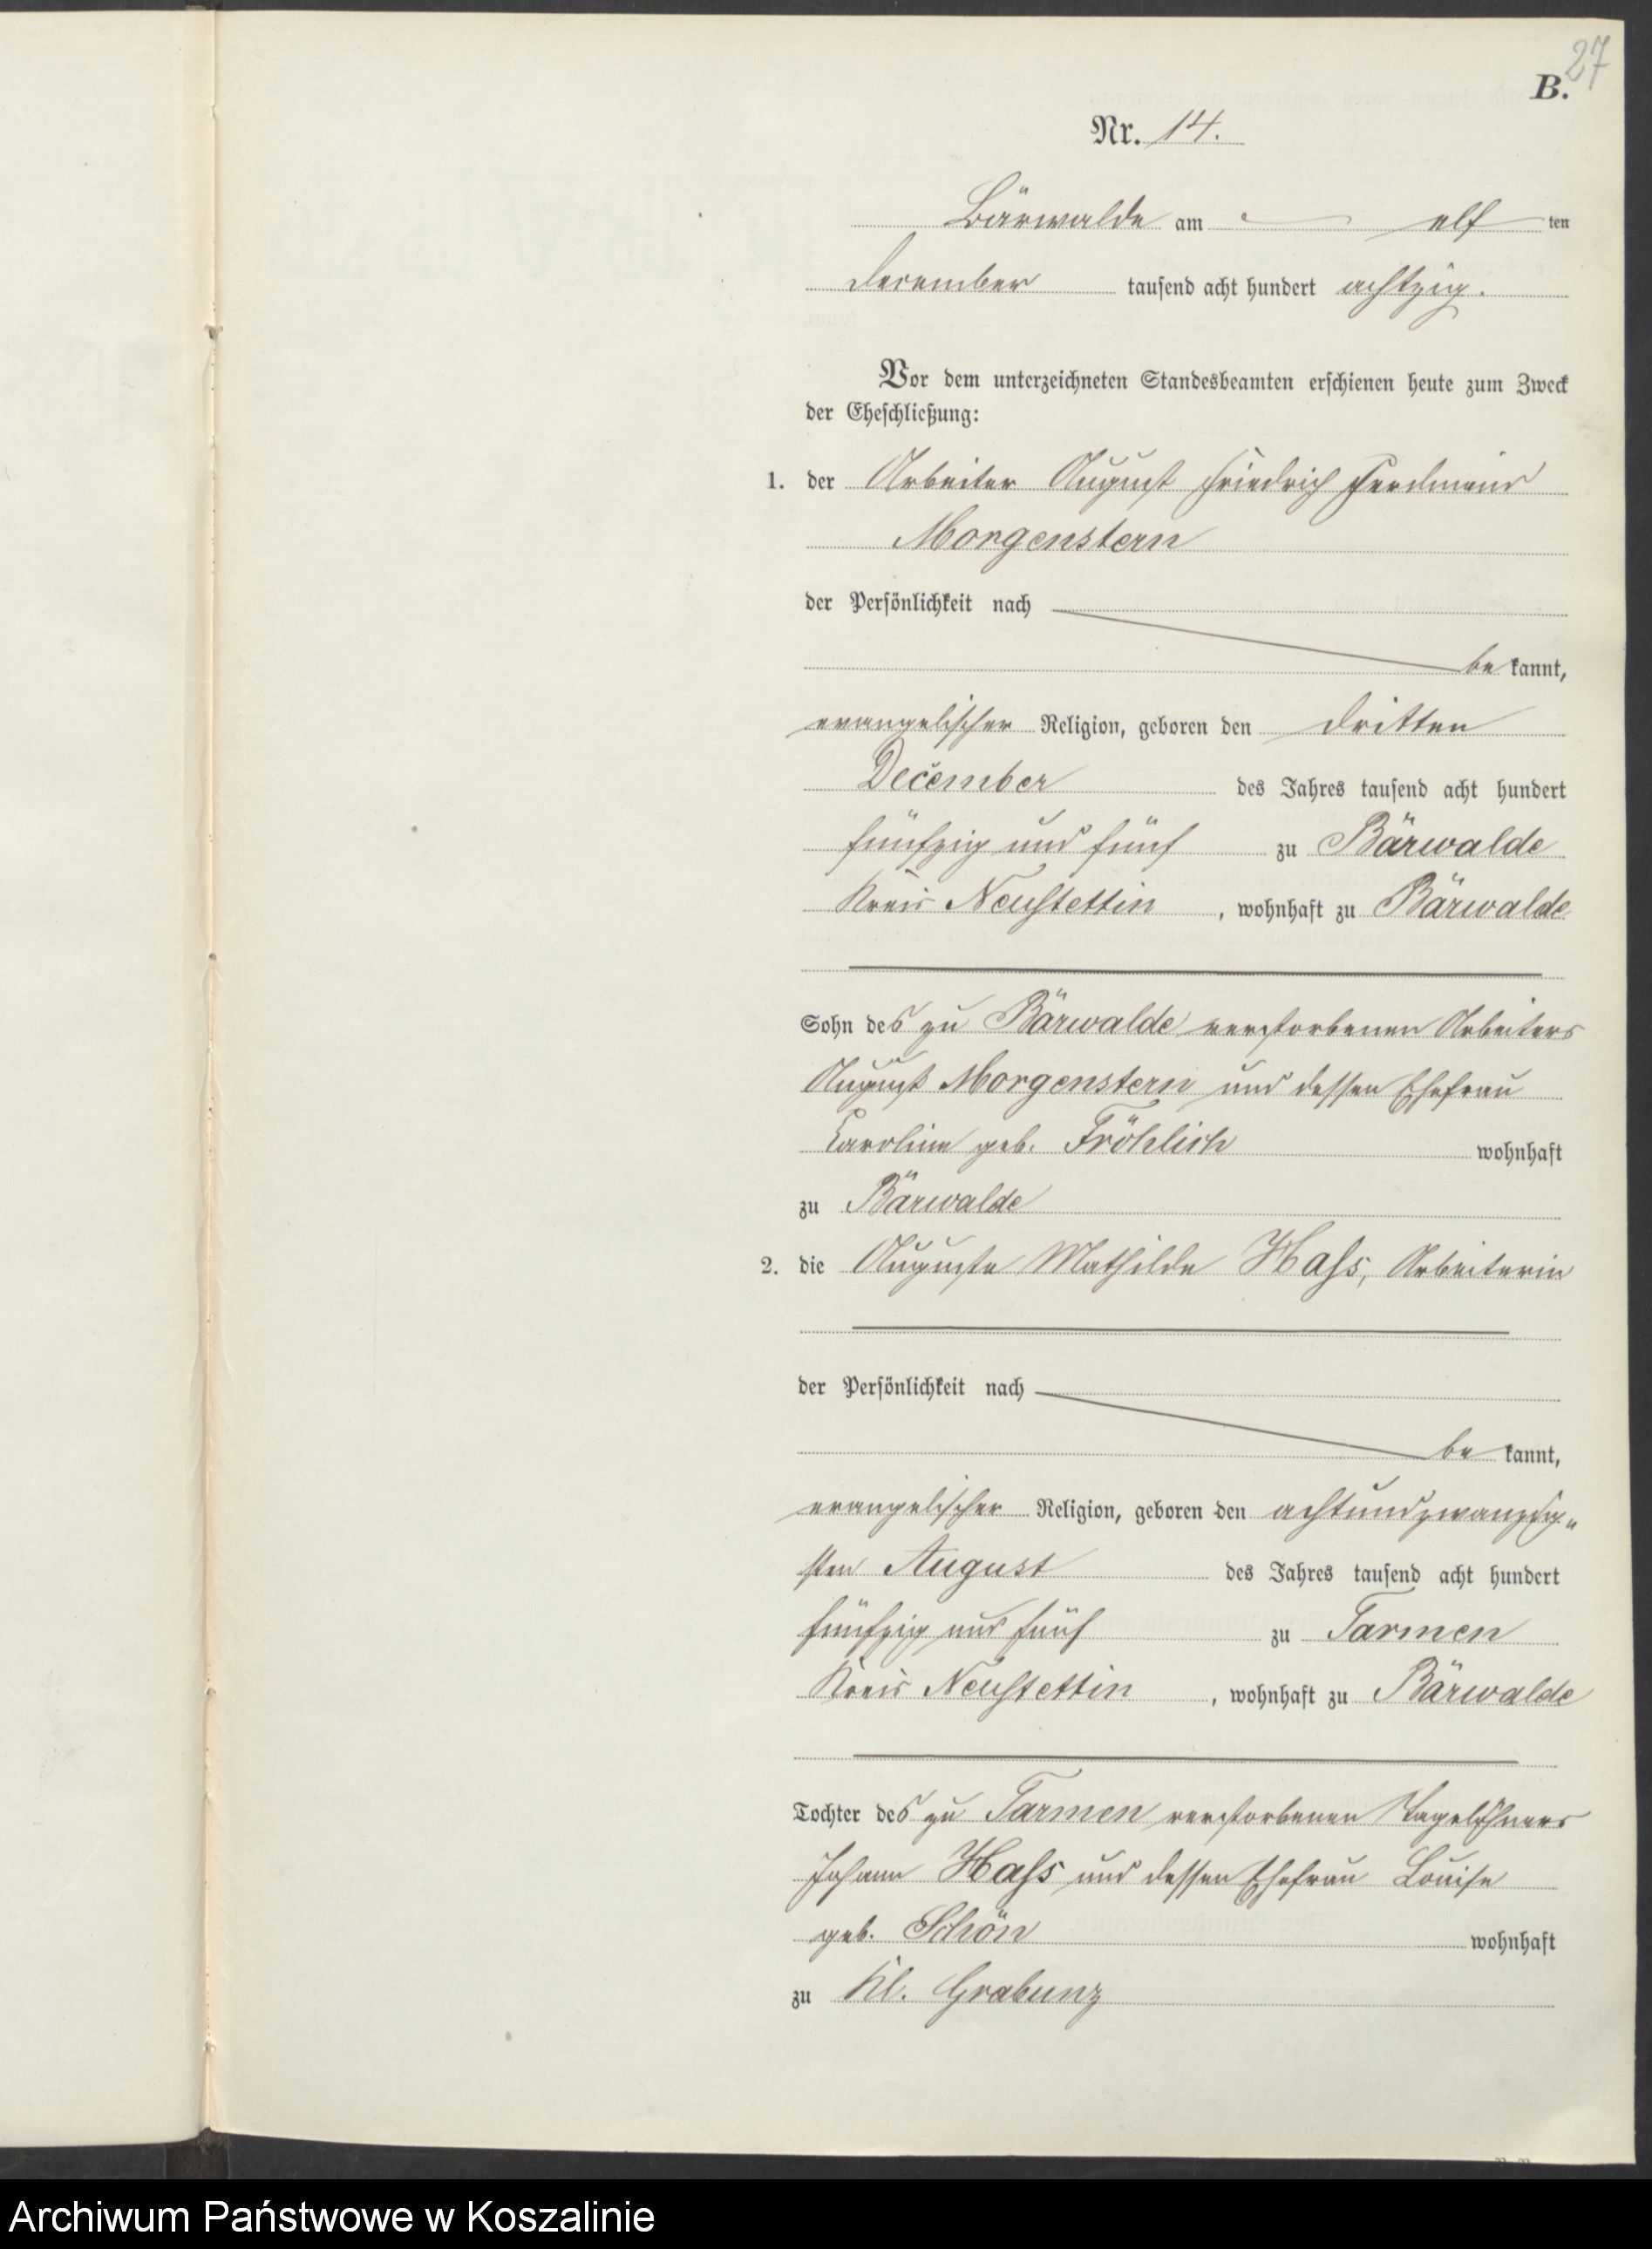 27
B.
Nr. 14.
Bärwalde am elf ten
December tausend acht hundert achtzig.
Vor dem unterzeichneten Standesbeamten erschienen heute zum Zweck
der Eheschließung:
1. der Arbeiter August Friedrich Ferdinand
Morgenstern
der Persönlichkeit nach
be kannt,
evangelischer Religion, geboren den dritten
December des Jahres tausend acht hundert
fünfzig und fünf zu Bärwalde
Kreis Neustettin, wohnhaft zu Bärwalde
Sohn des zu Bärwalde verstorbenen Arbeiters
August Morgenstern und dessen Ehefrau
Caroline geb. Fröhlich wohnhaft
zu Bärwalde
2. die Auguste Mathilde Hass, Arbeiterin
der Persönlichkeit nach
be kannt,
evangelischer Religion, geboren den achtundzwanzig-
sten August des Jahres tausend acht hundert
fünfzig und fünf zu Tarmen
Kreis Neustettin, wohnhaft zu Bärwalde
Tochter des zu Tarmen verstorbenen Tagelöhners
Johann Hass und dessen Ehefrau Louise
geb. Schön wohnhaft
zu Kl. Grabunz
Archiwum Państwowe w Koszalinie